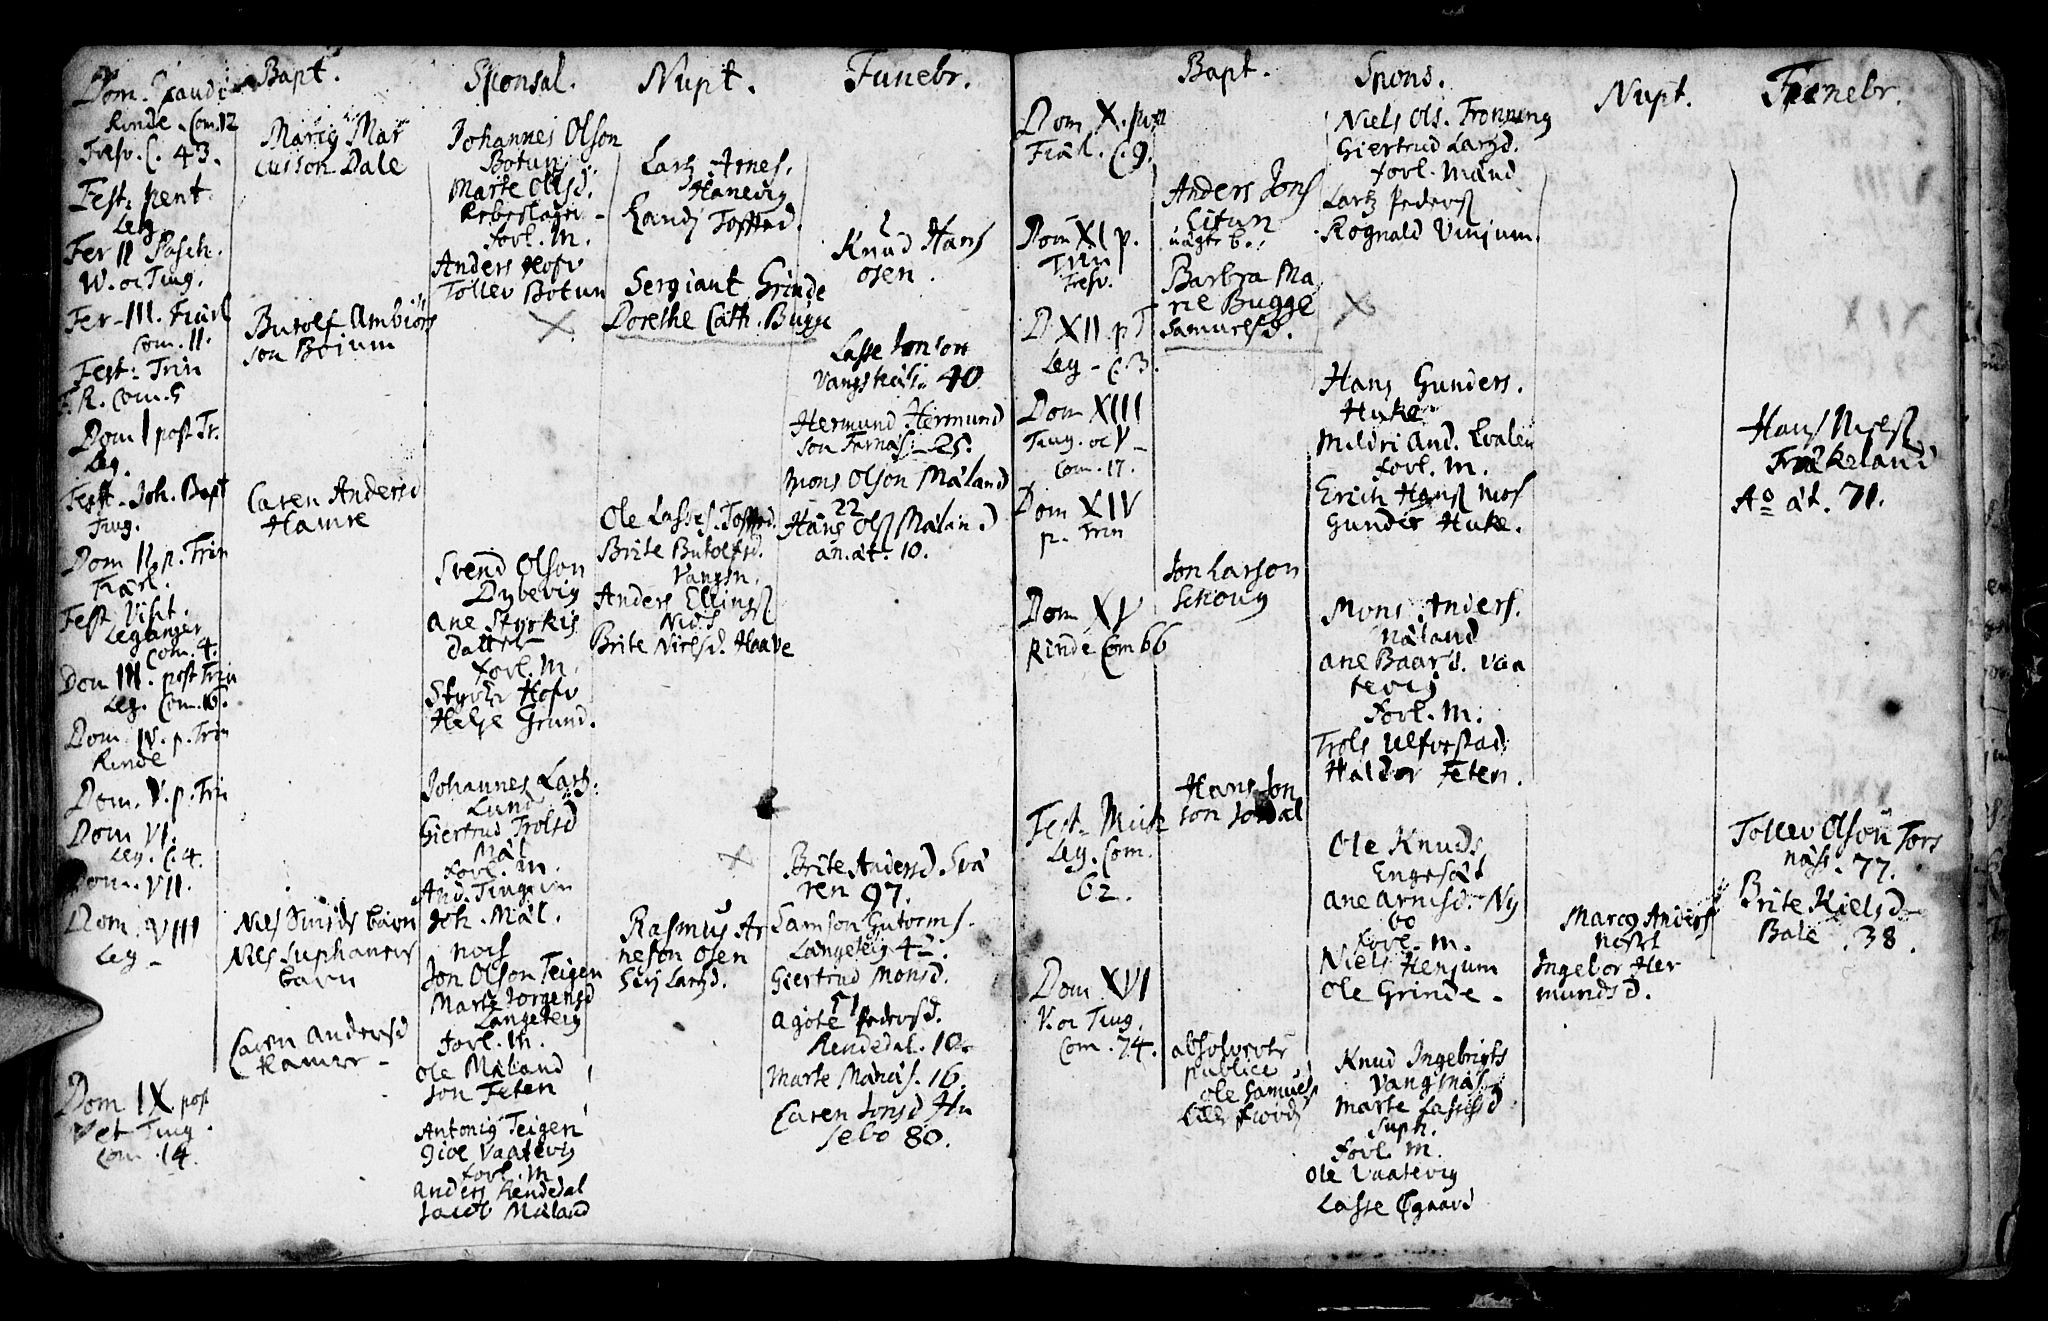 Bapt.
Sponsal.
Nupt.
Funebr.
Dom. Exaudi
Rinde. Com. 12
Fresv. C. 43.
Fest: pent.
Leg.
Fer II Pasch.
W. oc Ting.
Fer. III. Fiærl
Com. 11.
Fest: Trin
F. R. Com. 5
Dom I post Tr.
Leg.
Fest. Joh. Bapt
Ting.
Dom II p. Trin
Fiærl.
Fest Visit.
Leganger
Com. 4.
Dom III. post Trin
Leg. Com. 16.
Dom. IV. p. Trin
Rinde
Dom. V. p. Trin
Dom VI.
Leg. C. 4.
Dom. VII.
Dom. VIII
Leg -
Dom IX post
V et Ting.
Com. 14.
Marcg Mar
cusson Dale
Butolf Ambiörs
son Boium
Caren Andersd
Hamre
Niels Smids barn
Niels Suphamers
barn
Caren Andersd
Hamre -
Johannes Olson
Botun
Marte Olsd.
Rebeslager -
forl. M.
Anders Hofv
Tollev Botun
Svend Olson
Dybevig
Ane Styrkis
datter
forl. M.
Styrk Hofv
Helje Grind.
Johannes Lars:
Lund
Giertrud Trolsd
Mæl
forl. M.
And. Tingvm
Joh. Mæl.
nols
Jon Olson Teigen
Marte Jorgensd
Langeteig
forl. M.
Ole Mæland
Jon Feten
Antonig Teigen
Gioe Vaatevig
forl. M
Anders Rendedal
Jacob Mæland
Lars Arnes.
Hanevig
Randj Toftad.
Sergiant Grinde
Dorethe Cath. Bugge
Ole Lasses. Toftad.
Brite Butolfsd.
Vangsn.
Anders Ellings
Nids
Brite Nielsd. Haave
Rasmus Ar
neson Osen
Siri Larsd.
Knud Hans
osen.
Lasse Jonson
Vangsnæs. 40
Hermund Hermund
son Farnæs. 25.
Mons Olson Mæland
22
Hans Ols Mæland
an. æt. 10.
Brite Andersd. Svæ
ren 97.
Samson Gutorms.
Langeteig 42.
Giertrud Monsd.
51
Agote Pedersd.
Rendedal. 10.
Marte Manæs. 16.
Caren Jonsd Hu
sebo 80.
Bapt.
Spons.
Nupt.
Funebr.
Dom X. post
Fiæl. C. 9.
Dom XI p.
Trin
Fresv.
D. XII p T
Leg - C. 3.
Dom XIII
Ting. oc V -
Com. 17.
Dom XIV
p. Trin
Dom XV
Rinde Com 66
Fest. Mich
Leg. Com.
62.
Dom XVI
V. oc Ting.
Com. 74.
Anders Jons
Eitun
uægte b.
Barbra Ma
rie Bugge
Samuelsd.
Jon Larson
Schoug
Hans Jon
son Jordal
absolverte
publice
Ole Samuels
Lille Fiord
Niels Ols. Fronning
Giertrud Larsd.
forl. Mænd
Lars Peders
Rognald Vinjum.
Hans Gunders.
Huke
Mildri And. Evalen
forl. M.
Erich Hans Mos
Gunder Huke.
Mons Anders.
Næland
Ane Baars. Vaa
tevig
forl. M.
Trols Ulvestad
Haldor Feten.
Ole Knuds
Engesæt
Ane Arnisd. Ny
bo
forl. M.
Niels Henjum
Ole Grinde -
Knud Ingebrigts
Vangsnæs
Marte Lassesd
Suph.
forl. M.
Ole Vaatevig
Lasse Øgaard
Marcg Anders
Nesse
Ingebor Her
mundsd.
Hans Niels
Frækeland
Ao æt. 71.
Tollev Olson Tors
næs. 77.
Brite Nielsd
Bale. 38.